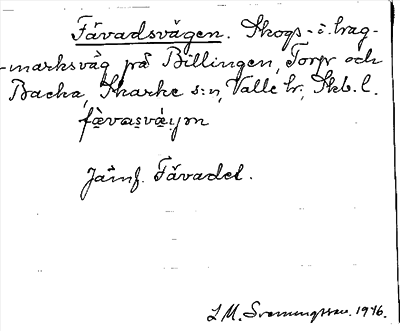 Fävadsvägen. Skogs- o. hag-
-marksväg på Billingen, Torp och
Backa, Skarke s:n, Valle hr, Skb. l.
fä̀vasvä̀ɡən
Jämf. Fävadet.
S. M. 1946.